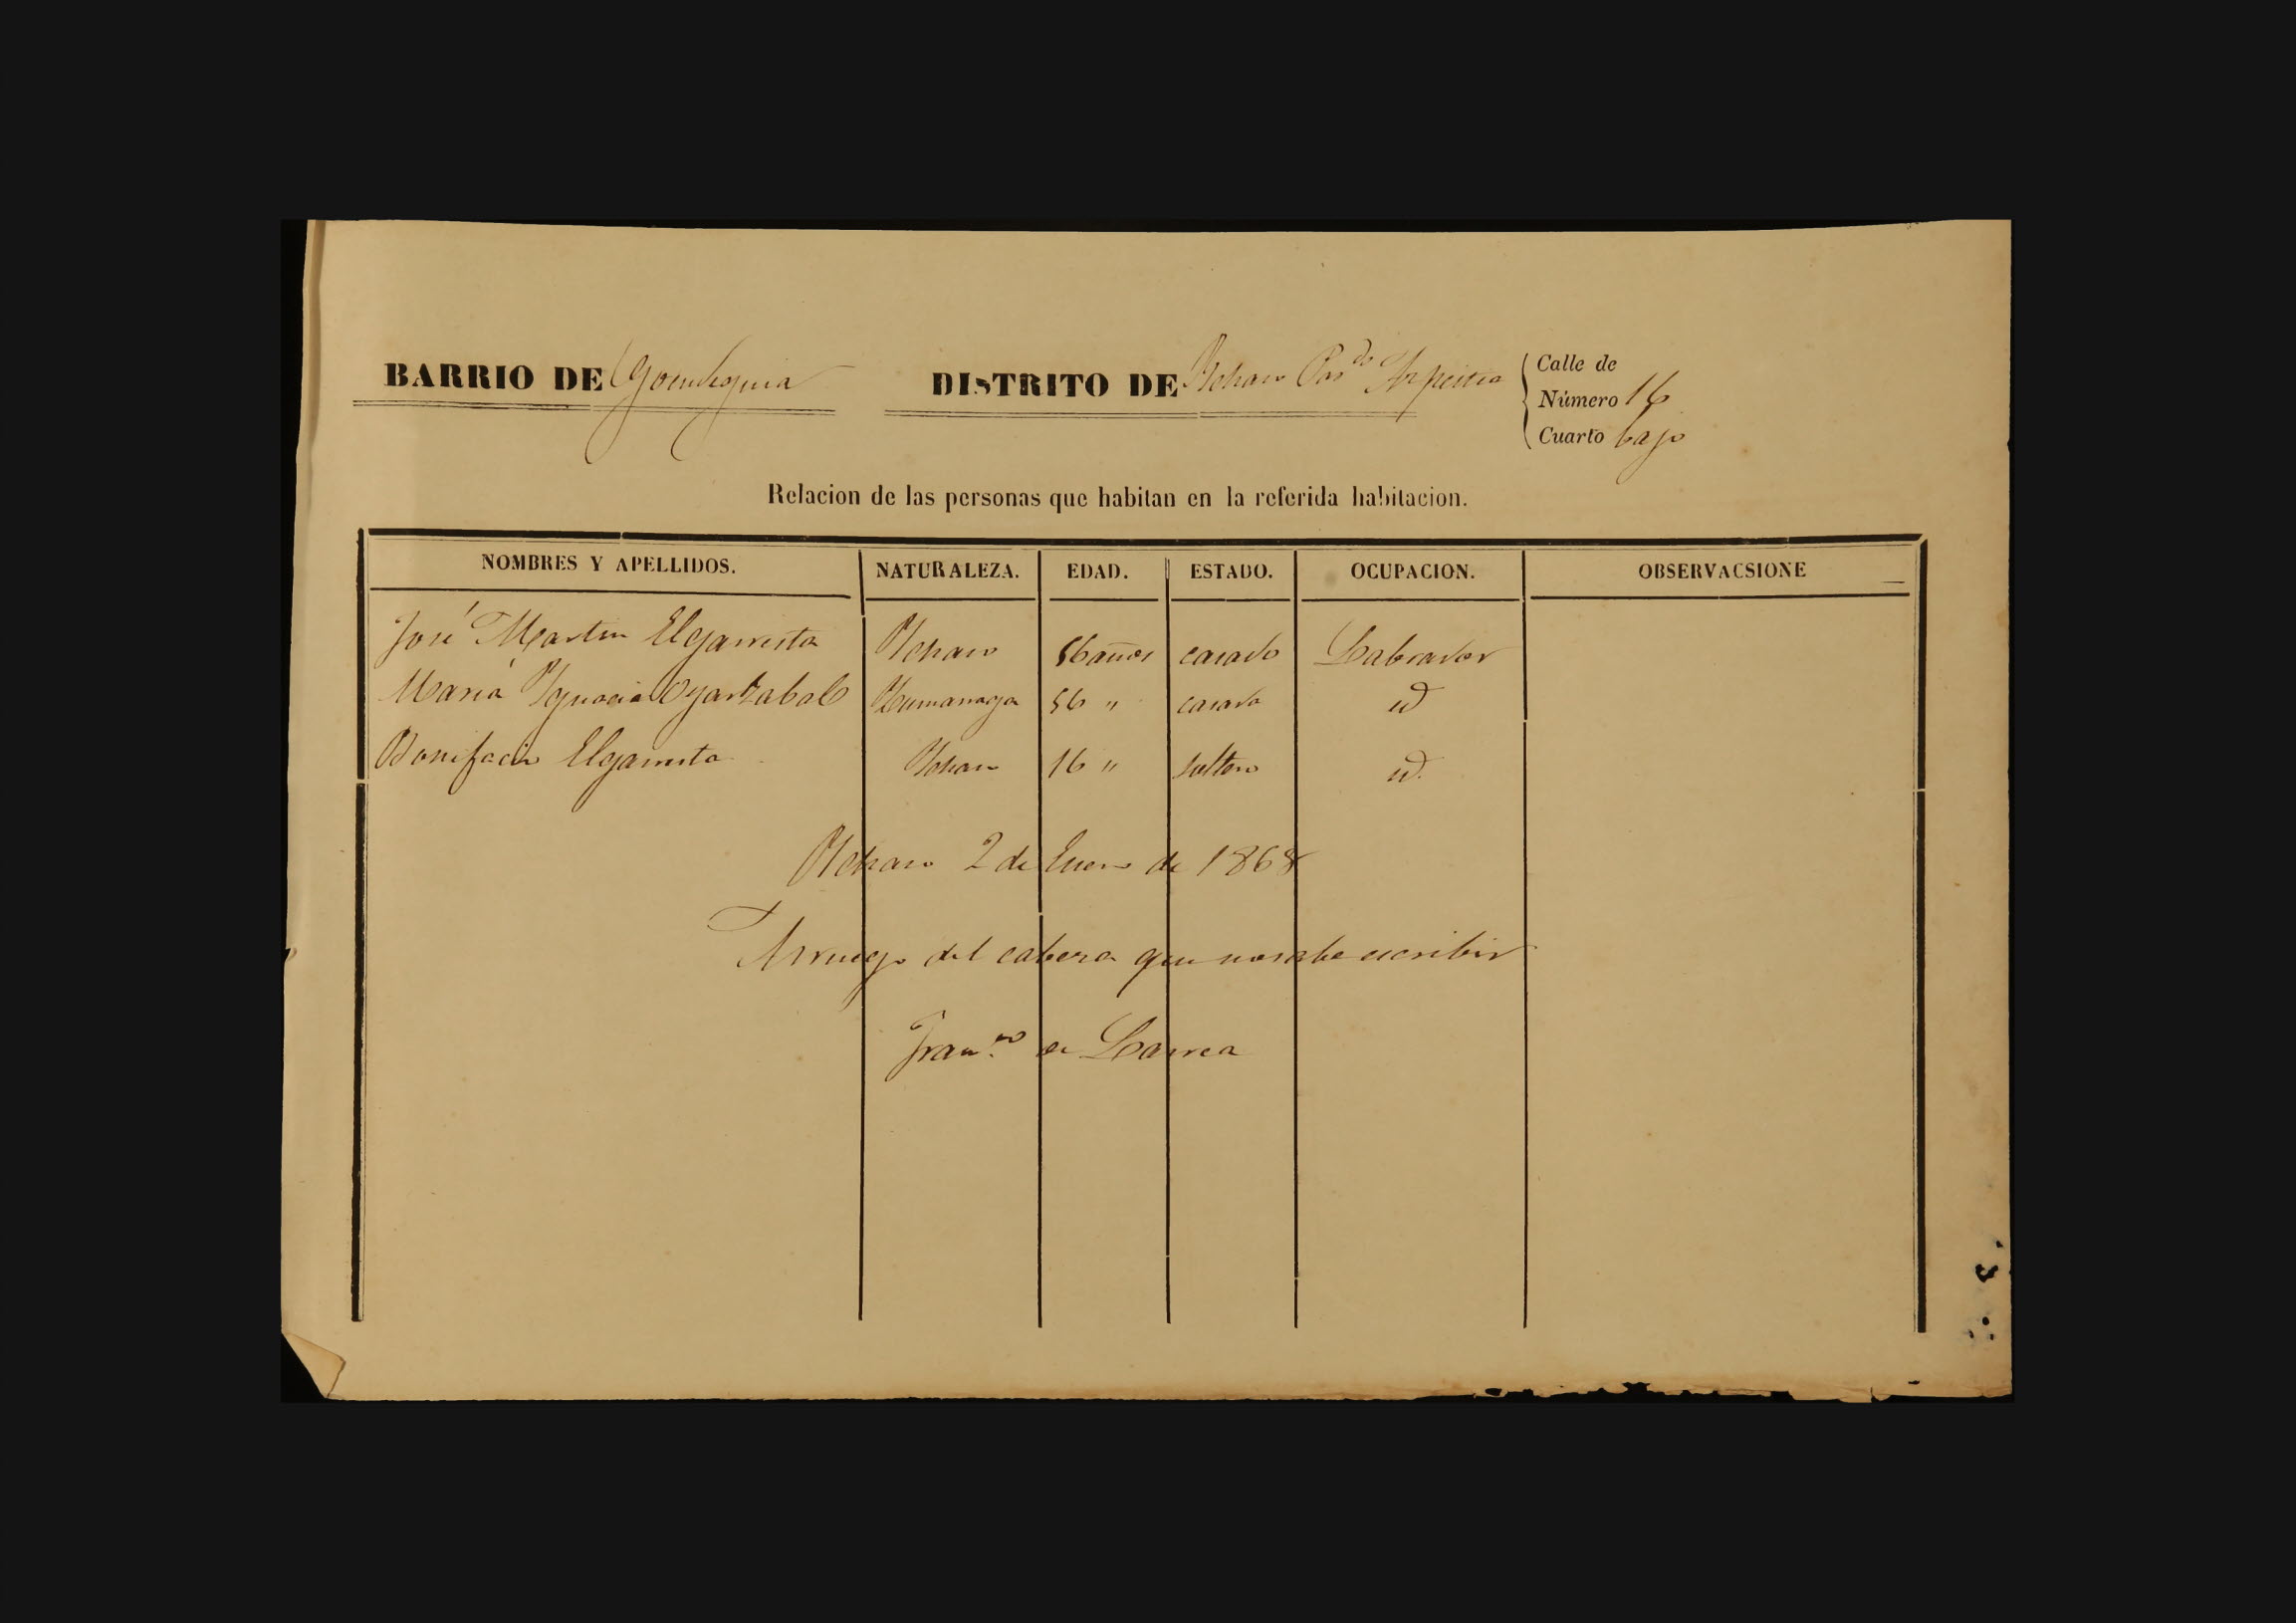 BARRIO DE Goendeguia DISTRITO DE Ychaso Par.do Azpeitia
Calle de
Número 16
Cuarto bajo
Relacion de las personas que habitan en la referida habitacion.
NOMBRES Y APELLIDOS. NATURALEZA. EDAD. ESTADO. OCUPACION. OBSERVACSIONE
José Martin Elgarresta Ychaso 56 años casado Labrador
Maria Ygnacia Oyarzabal Zumarraga 56 " casada id
Bonifacio Elgarresta Ychaso 16 " soltero id.
Ychaso 2 de Enero de 1868
Arruego del cabeza que no sabe escribir
Fran.co de Larrea